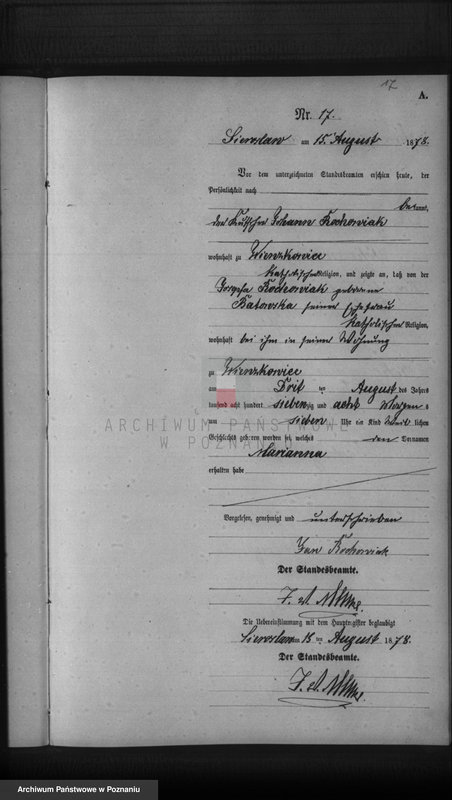 17
A.
Nr. 17.
am 15. August 1878.
Vor dem unterzeichneten Standesbeamten erschien heute, der
Persönlichkeit nach
bekannt,
der Kutscher Johann Kochowiak
wohnhaft zu Wienzkowice
katholischer Religion, und zeigte an, daß von der
Josepha Kochowiak geborene
Ratowska seiner Ehefrau
katholischer Religion,
wohnhaft bei ihm in seiner Wohnung
zu Wienzkowice
am Drit ten August des Jahres
tausend acht hundert siebenzig und acht Morgens
um sieben Uhr ein Kind weiblichen
Geschlechts geboren worden sei, welches den Vornamen
Marianna
erhalten habe
Vorgelesen, genehmigt und unterschrieben
Jan Kochowiak
Der Standesbeamte.
Die Uebereinstimmung mit dem Hauptregister beglaubigt
am 18 ten August 1878.
Der Standesbeamte.
ARCHIWUM PAŃSTWOWE
W POZNANIU
Archiwum Państwowe w Poznaniu